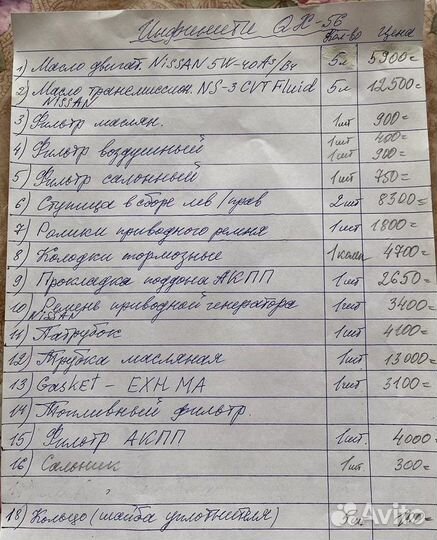 Инфинити QX-56
Кол-во Цена
1) Масло двигат. NiSSAN 5W-40 A3/B4 5л 5900=
2) Масло трансмиссион. NS-3 CVT Fluid 5л 12.500=
NISSAN
3) Фильтр маслян. 1шт 900=
1шт 400=
4) Фильтр воздушный 1шт 900=
5) Фильтр салонный 1шт 750=
6) Ступица в сборе лев/прав 2шт 8300=
7) Ролики приводного ремня 1шт 1800=
8) Колодки тормозные 1комп 4700=
9) Прокладка поддона АКПП 1шт 2650=
10) Ремень приводной генератора 1шт 3400=
NISSAN
11) Патрубок 1шт 4100=
12) Трубка масляная 1шт 13000=
13) Gasket - EXH. MA 1шт 3100=
14) Топливный фильтр.
15) Фильтр АКПП 1шт. 4000=
16) Сальник 1шт 300=
18) Кольцо (шайба уплотнителя)
Avito